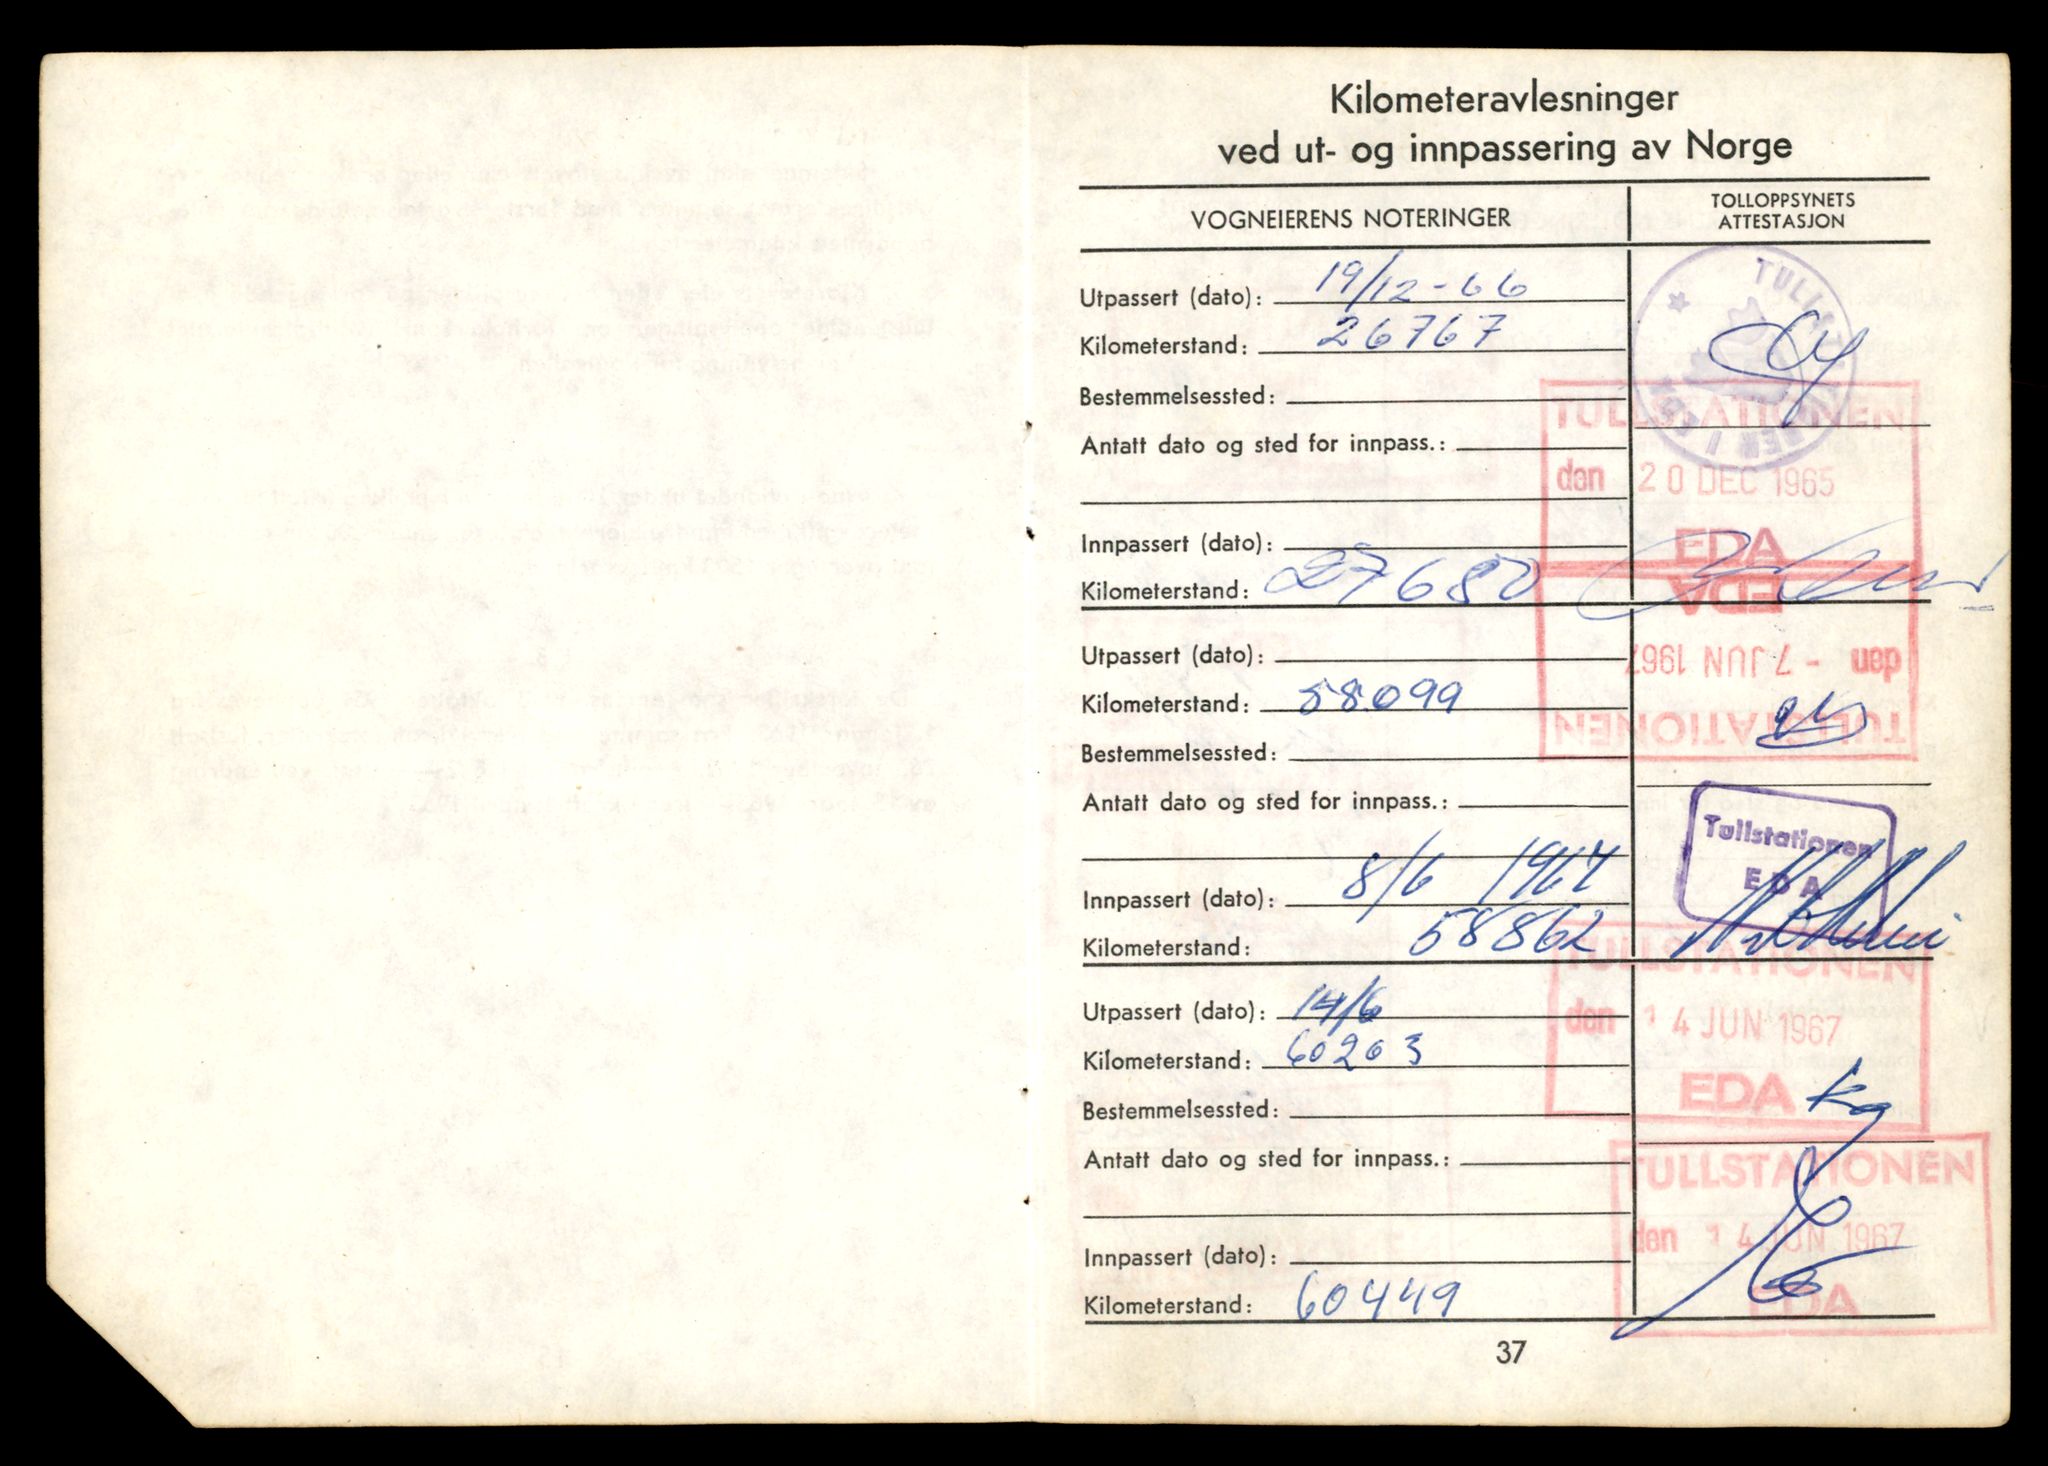 Kilometeravlesninger
ved ut- og innpassering av Norge
VOGNEIERENS NOTERINGER
TOLLOPPSYNETS
ATTESTASJON
Utpassert (dato): 19/12-66
Kilometerstand: 26767
Bestemmelsessted:
Antatt dato og sted for innpass.:
TULLSTATIONEN
den 20 DEC 1965
EDA
Innpassert (dato):
Kilometerstand: 27680
EDA
Utpassert (dato):
den - 7 JUN 1967
Kilometerstand: 58099
TULLSTATIONEN
Bestemmelsessted:
Antatt dato og sted for innpass.:
Tullstationen
EDA
Innpassert (dato): 8/6 1967
Kilometerstand: 58862
TULLSTATIONEN
Utpassert (dato): 14/6
den 14 JUN 1967
Kilometerstand: 60203
EDA
Bestemmelsessted:
Antatt dato og sted for innpass.:
TULLSTATIONEN
den 14 JUN 1967
Innpassert (dato):
EDA
Kilometerstand: 60449
37